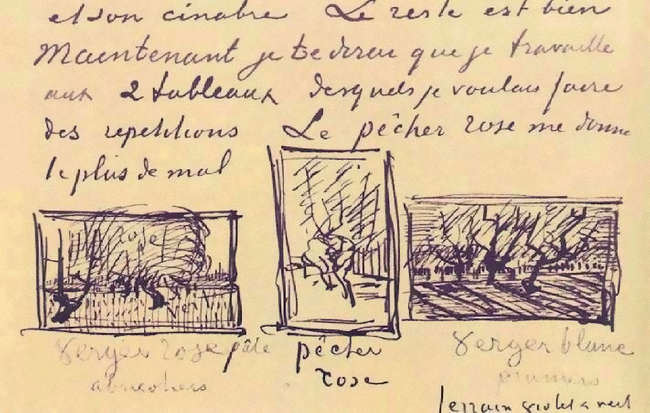 et son cinabre Le reste est bien
Maintenant je te dirai que je travaille
aux 2 tableaux desquels je voulais faire
des repetitions Le pêcher rose me donne
le plus de mal
rose
vert
verger rose pâle
abricotiers
pêcher
rose
verger blanc
pruniers
terrain violet & vert